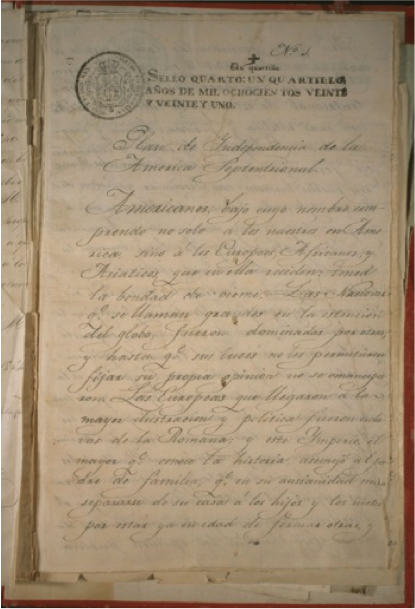 Nº 1
Un quartillo
SELLO QUARTO: UN QUARTILLO
AÑOS DE MIL OCHOCIENTOS VEINTE
Y VEINTE Y UNO.
Plan de Independencia de la
America Septentrional.
Americanos, bajo cuyo nombre com-
prendo no solo á los nacidos en Ame
rica, sino á los Europeos, Africanos, y
Asiaticos, que en ella reciden: tened
la bondad de oirme. Las Naciones
qº se llaman grandes en la extencion
del globo, fueron dominadas por otras,
y hasta qº sus luces no les permitieron
fijar su propia opinion no se emancipa
ron. Las Europeas que llegaron á la
mayor ilustracion y politica fueron escla
vas de la Romana; y este Imperio, el
mayor qº conoce la historia asemejó al pa
dre de familia, qº en su ancianidad mira
separarse de su casa á los hijos y los nietos
por estar ya en edad de formar otras, y